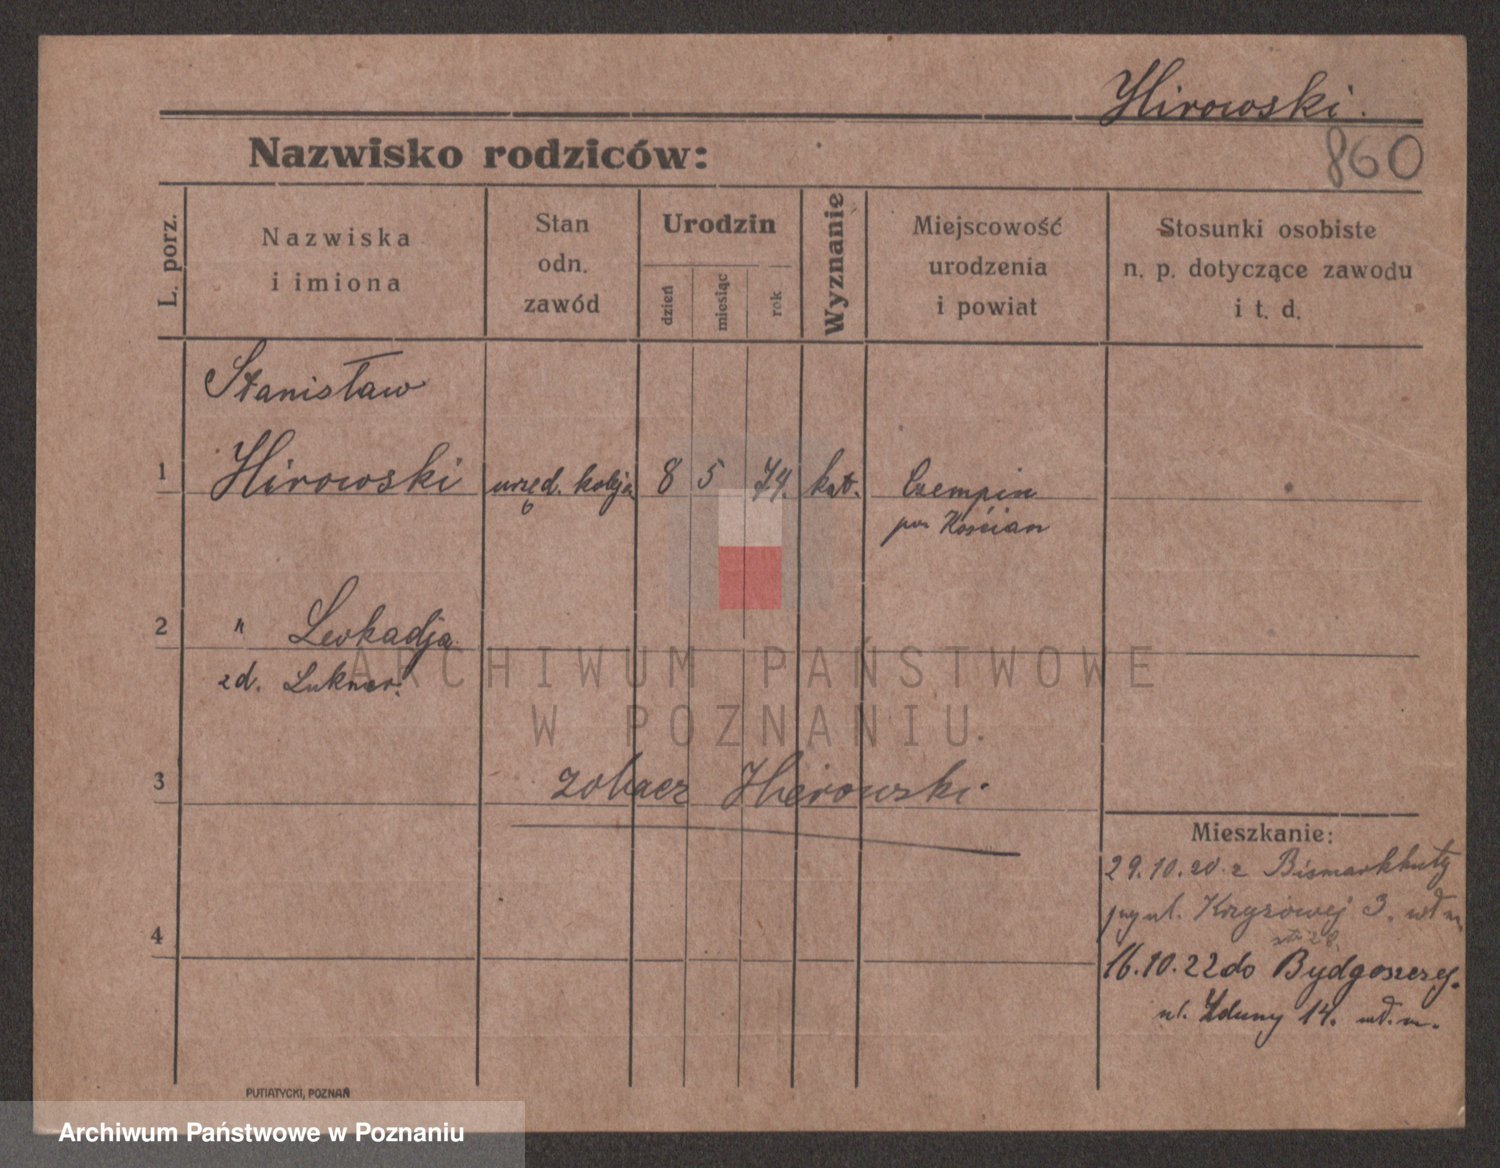 Hirowski.
860
Nazwisko rodziców:
L. porz.
Nazwiska
i imiona
Stan
odn.
zawód
Urodzin
dzień
miesiąc
rok
Wyznanie
Miejscowość
urodzenia
i powiat
Stosunki osobiste
n. p. dotyczące zawodu
i t. d.
Stanisław
1 Hirowski urzęd. koleja 8 5 74. kat. Czempin
pow Kościan
2 " Leokadja
zd. Lukner.
ARCHIWUM PAŃSTWOWE
W POZNANIU
3 zobacz Hierowski.
Mieszkanie:
29.10.20. z Bismarkhuty
przy ul. Krzyżowej 3.
4
16.10.22 do Bydgoszczy.
ul. Zduny 14.
PUTIATYCKI, POZNAŃ
Archiwum Państwowe w Poznaniu